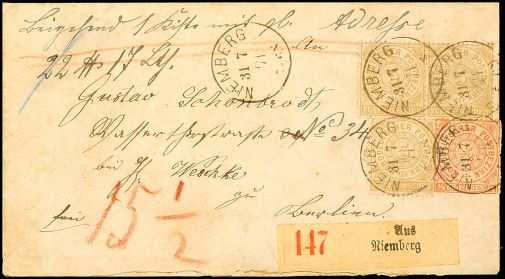 Beigehend 1 Kiste mit gl. Adresse
An
22 ℔ 17 Lth.
Gustav Schönbrodt,
Wasserthorstrasse No 34
bei H. Weschke
zu
frei
Berlin.
15 1/2
NIEMBERG
31 7
71
NIEMBERG
31 7
NIEMBERG
31 7
NIEMBERG
31 7
71
NIEMBERG
31 7
147
Aus
Niemberg